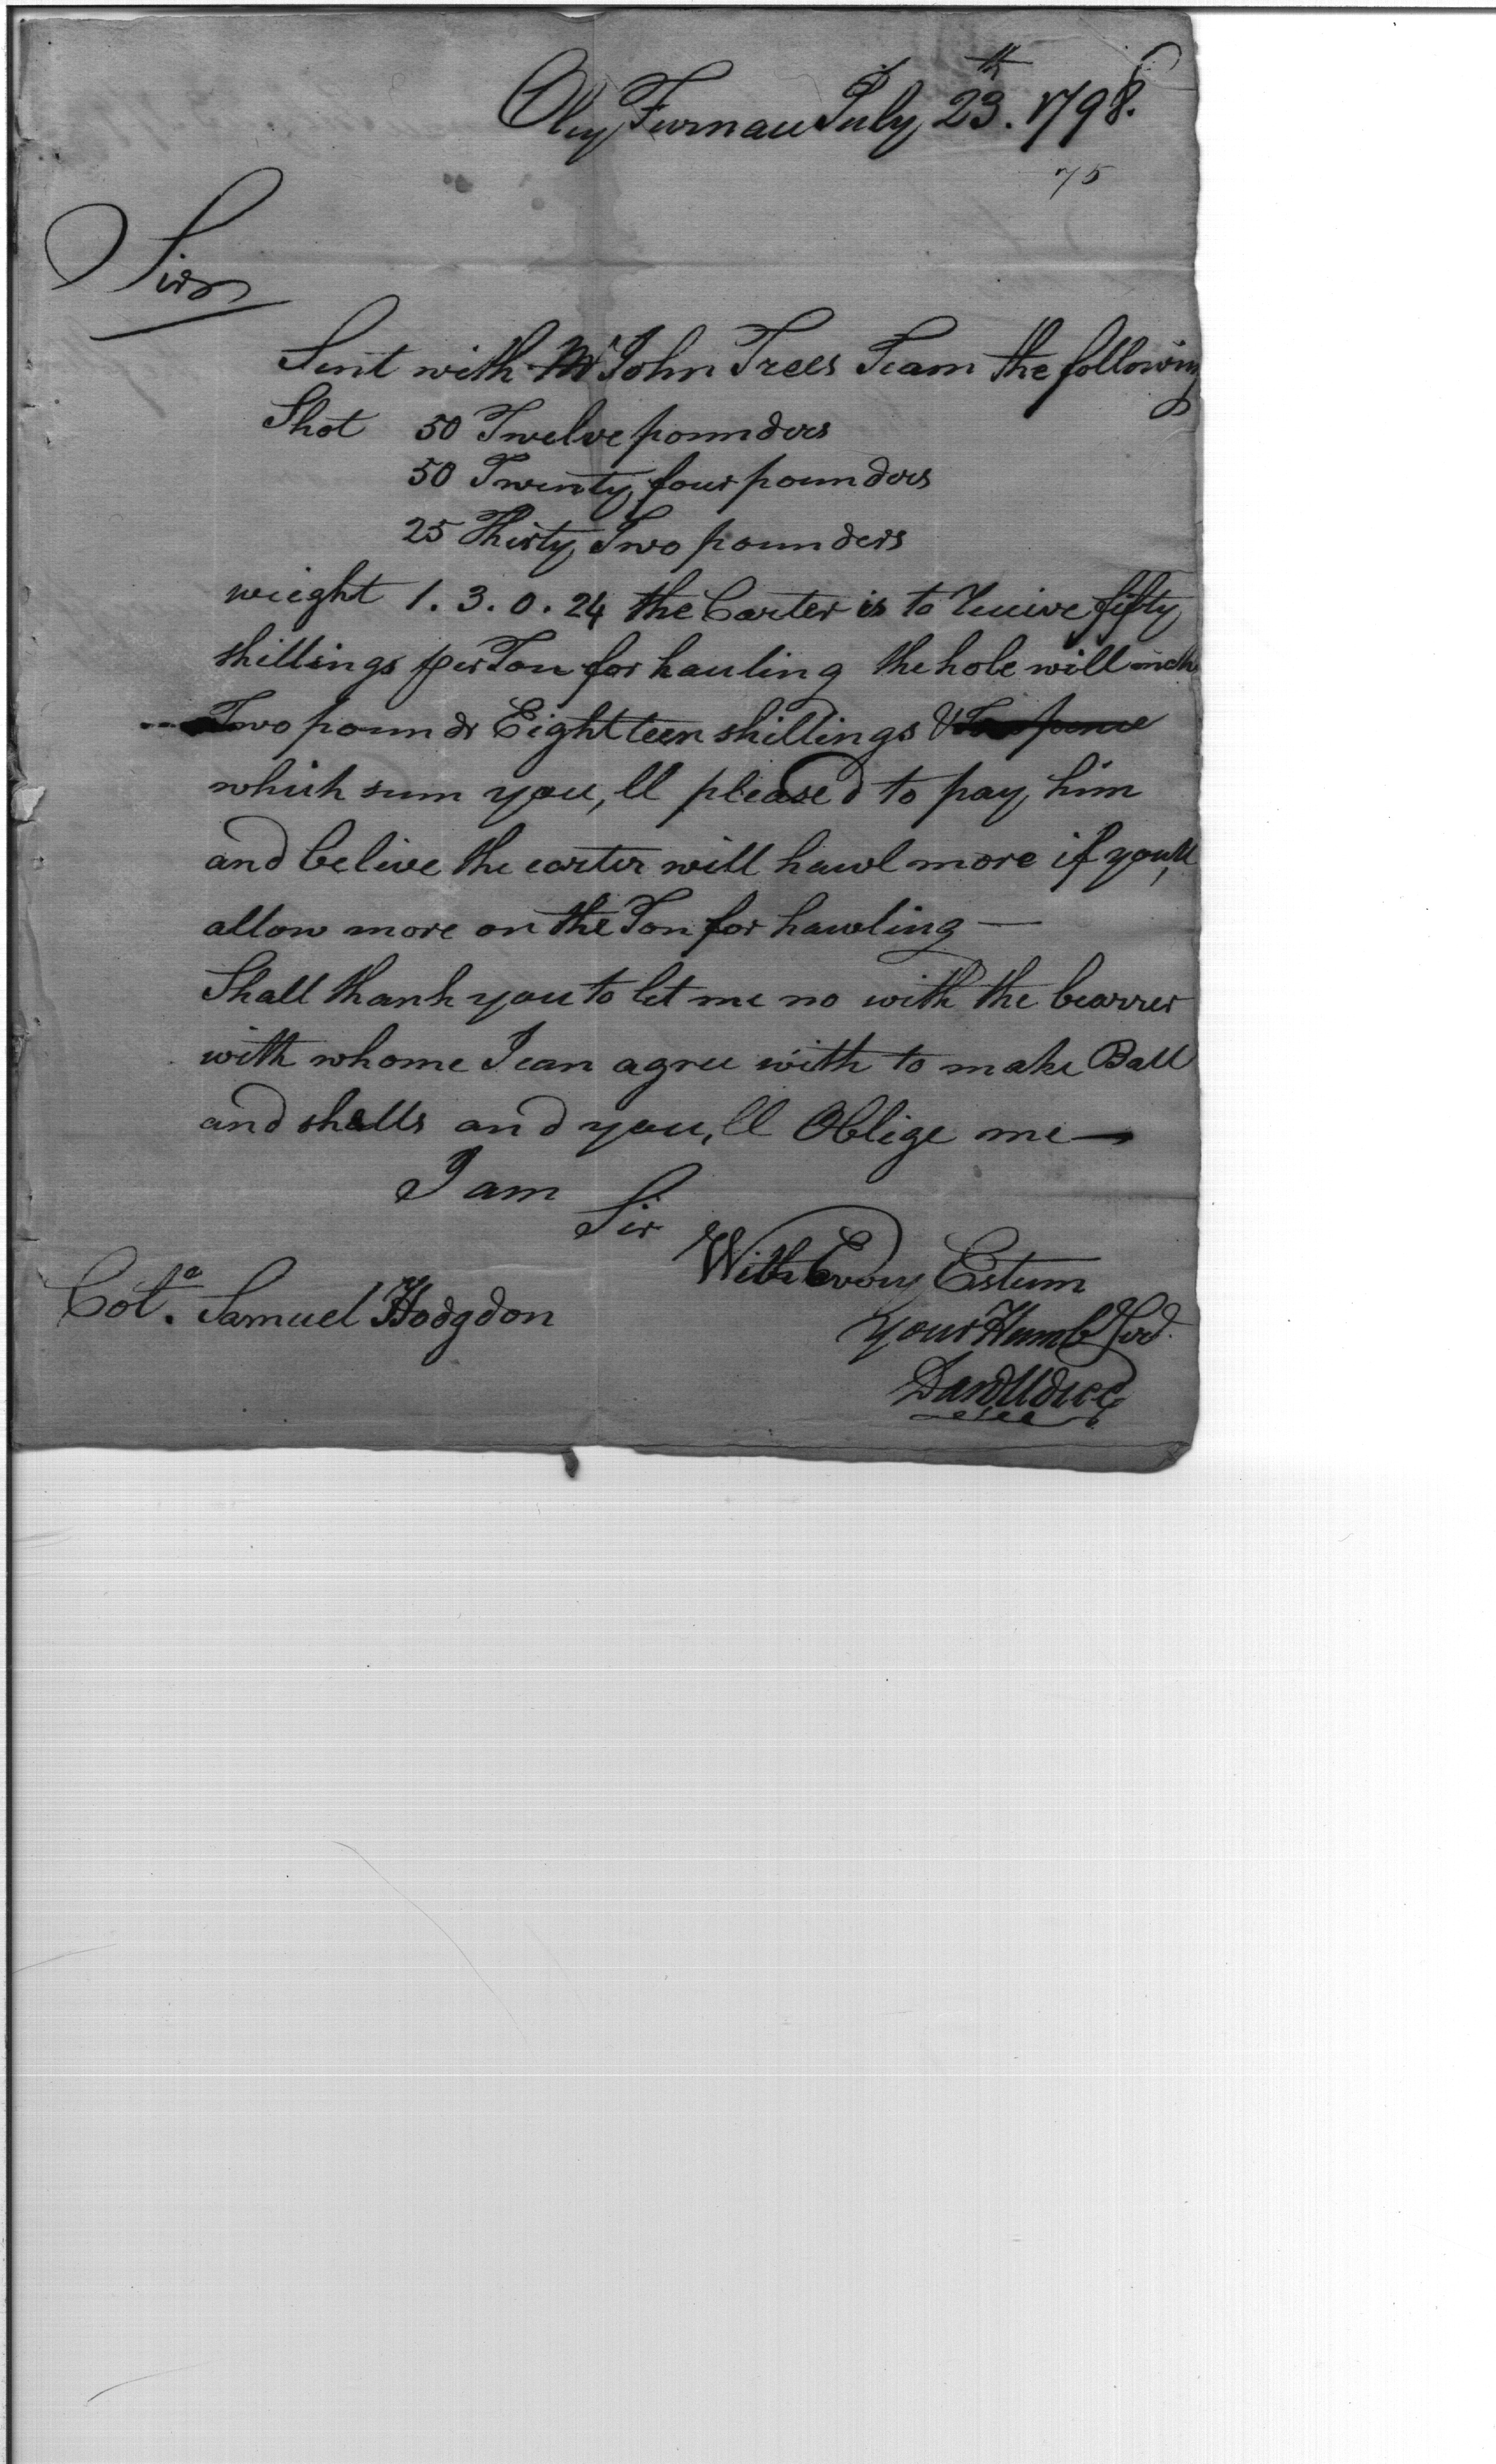 Oley Furnace July 23.th 1798.
75
Sir
Sent with Mr John Trees Team the following
Shot 50 Twelve pounders
50 Twenty four pounders
25 Thirty Two pounders
wieght 1. 3. 0. 24 the Carter is to Receive fifty
shillings per Ton for hauling the hole will
Two pounds Eightteen shillings &
which sum you,ll pleased to pay him
and belive the carter will hawl more if you,ll
allow more on the Ton for hawling —
Shall thank you to let me no with the bearrer
with whome I can agree with to make Ball
and shells and you,ll Oblige me —
I am
Sir
With Every Esteem
Col. Samuel Hodgdon
your Humb